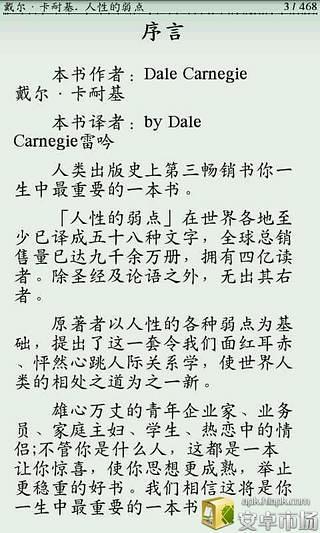 戴尔·卡耐基.人性的弱点 3/468
序言
本书作者：Dale Carnegie
戴尔·卡耐基
本书译者：by Dale
Carnegie雷吟
人类出版史上第三畅销书你一
生中最重要的一本书。
「人性的弱点」在世界各地至
少已译成五十八种文字，全球总销
售量已达九千余万册，拥有四亿读
者。除圣经及论语之外，无出其右
者。
原著者以人性的各种弱点为基
础，提出了这一套令我们面红耳赤
、怦然心跳人际关系学，使世界人
类的相处之道为之一新。
雄心万丈的青年企业家、业务
员、家庭主妇、学生、热恋中的情
侣;不管你是什么人，这都是一本
让你惊喜，使你思想更成熟，举止
更稳重的好书。我们相信这将是你
一生中最重要的一本书
apk.hiapk.com
安卓市场